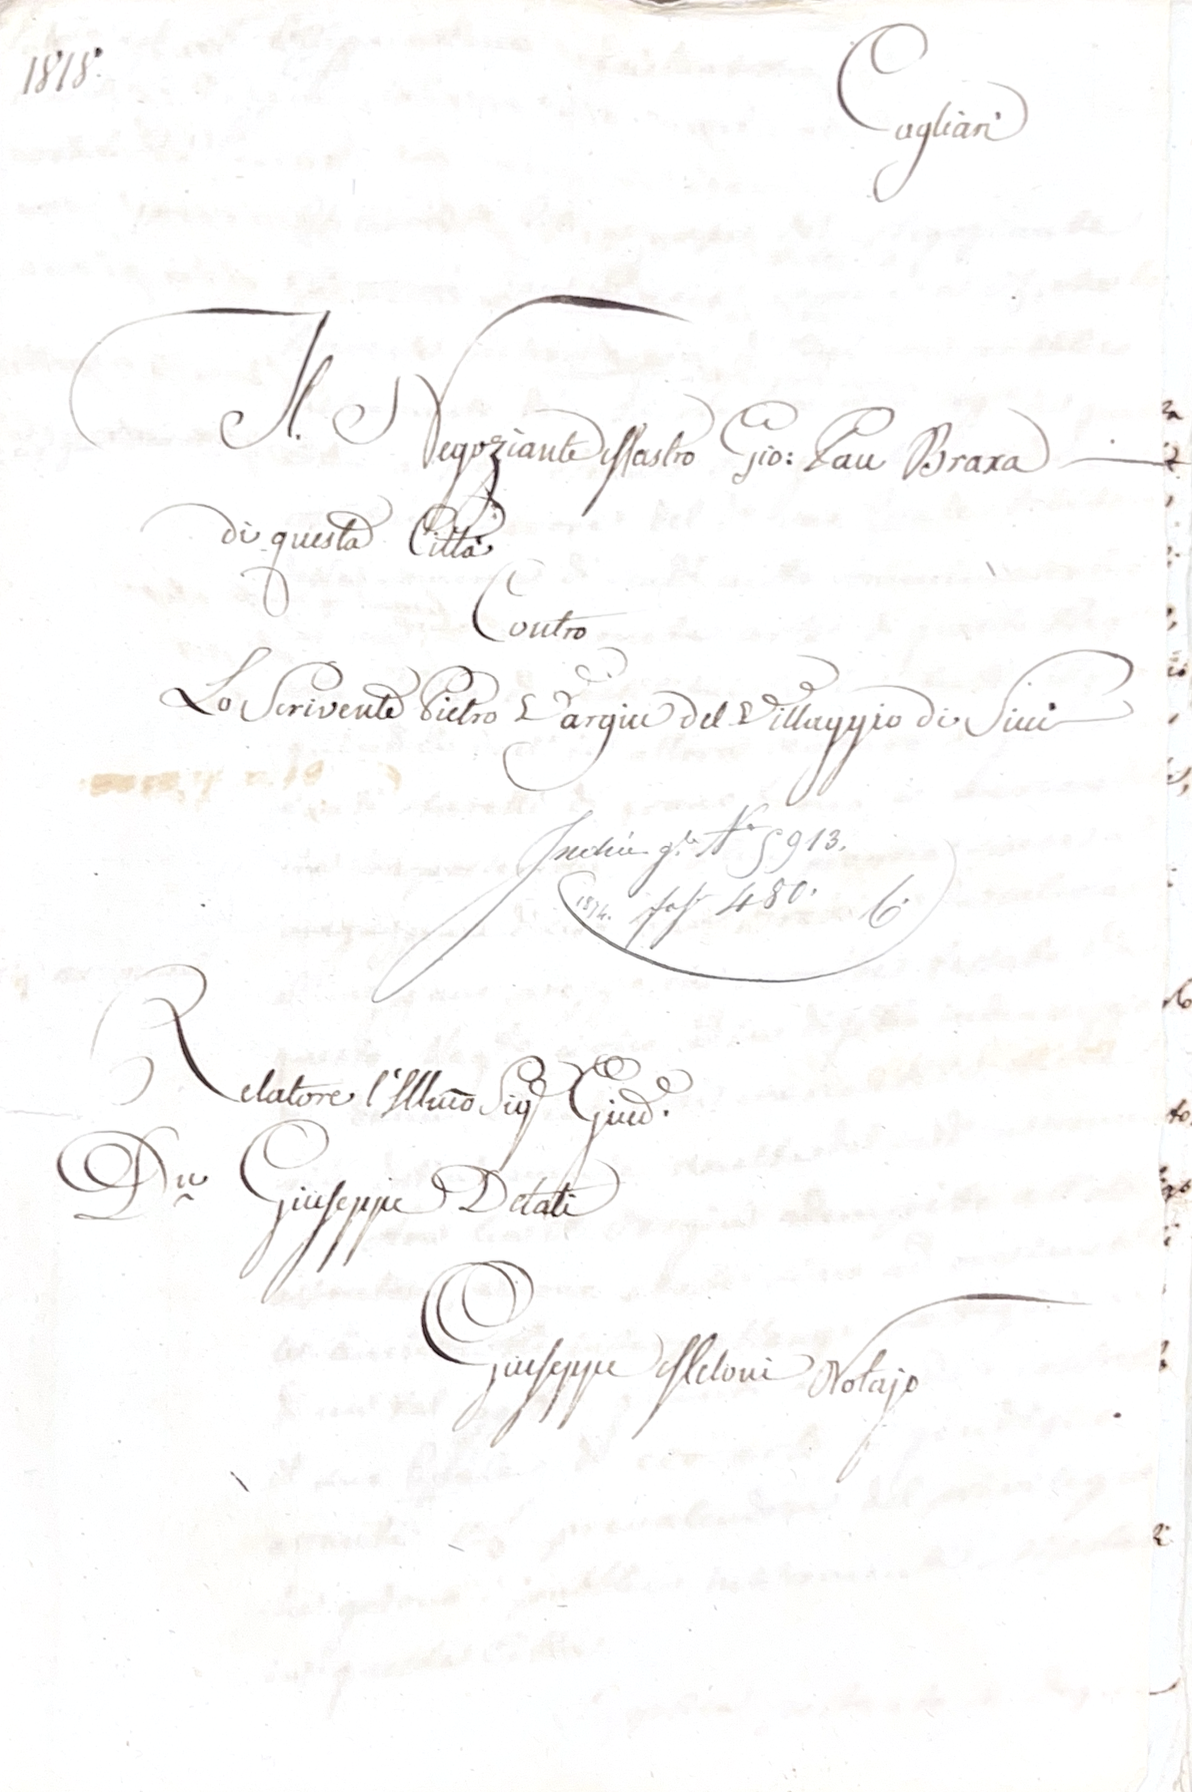 1818.
Cagliari
Il Negoziante Mastro Gio: Pau Braxa
di questa Città
Contro
Lo Scrivente Pietro Vargiu del Villaggio di Sini
gle No 5913.
1874. fasc 480. 6.
Relatore l'Illmo Sigr Giud.
Dn Giuseppe Delati
Giuseppe Meloni Notajo